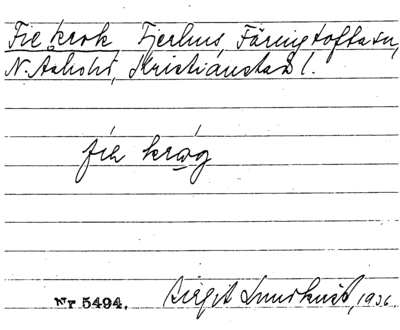 Fie krok, Tjerhus, Färingtofta sn,
N. Åsbo hd, Kristianstad l.
fia krog
Nr 5494. Birgit Lundkvist, 1936